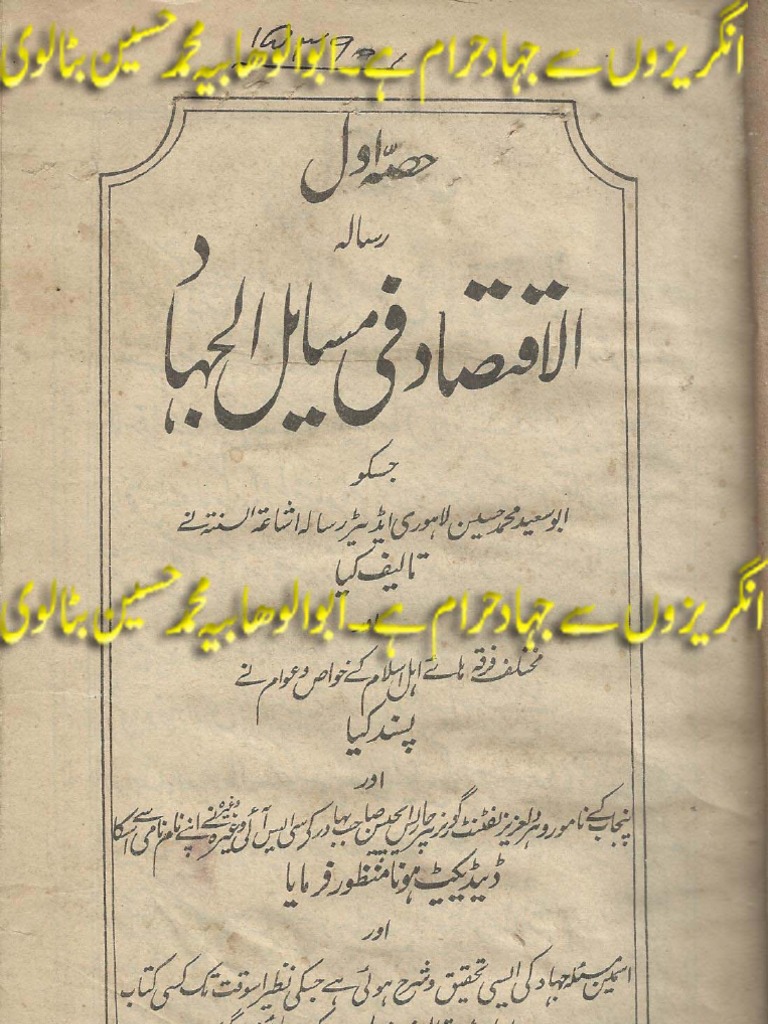 انگریزوں سے جہاد حرام ہے۔ ابوالوھابیہ محمد حسین بٹالوی
حصّہ اول
رسالہ
الاقتصاد فی مسایل الجہاد
جسکو
ابو سعید محمد حسین لاہوری ایڈیٹر رسالہ اشاعۃ السنۃ نے
تالیف کیا
انگریزوں سے جہاد حرام ہے۔ ابوالوھابیہ محمد حسین بٹالوی
مختلف فرقہ ہائے اہل اسلام کے خواص و عوام نے
پسند کیا
اور
پنجاب کے نامور و ہردلعزیز لفٹنٹ گورنر سر چارلس ایچیسن صاحب بہادر کے سی ایس آئی وغیرہ وغیرہ نے اپنے نام نامی سے اسکا
ڈیڈیکیٹ ہونا منظور فرمایا
اور
اسمین مسئلہ جہاد کی ایسی تحقیق و شرح ہوئی ہے جسکی نظیر اسوقت تک کسی کتاب